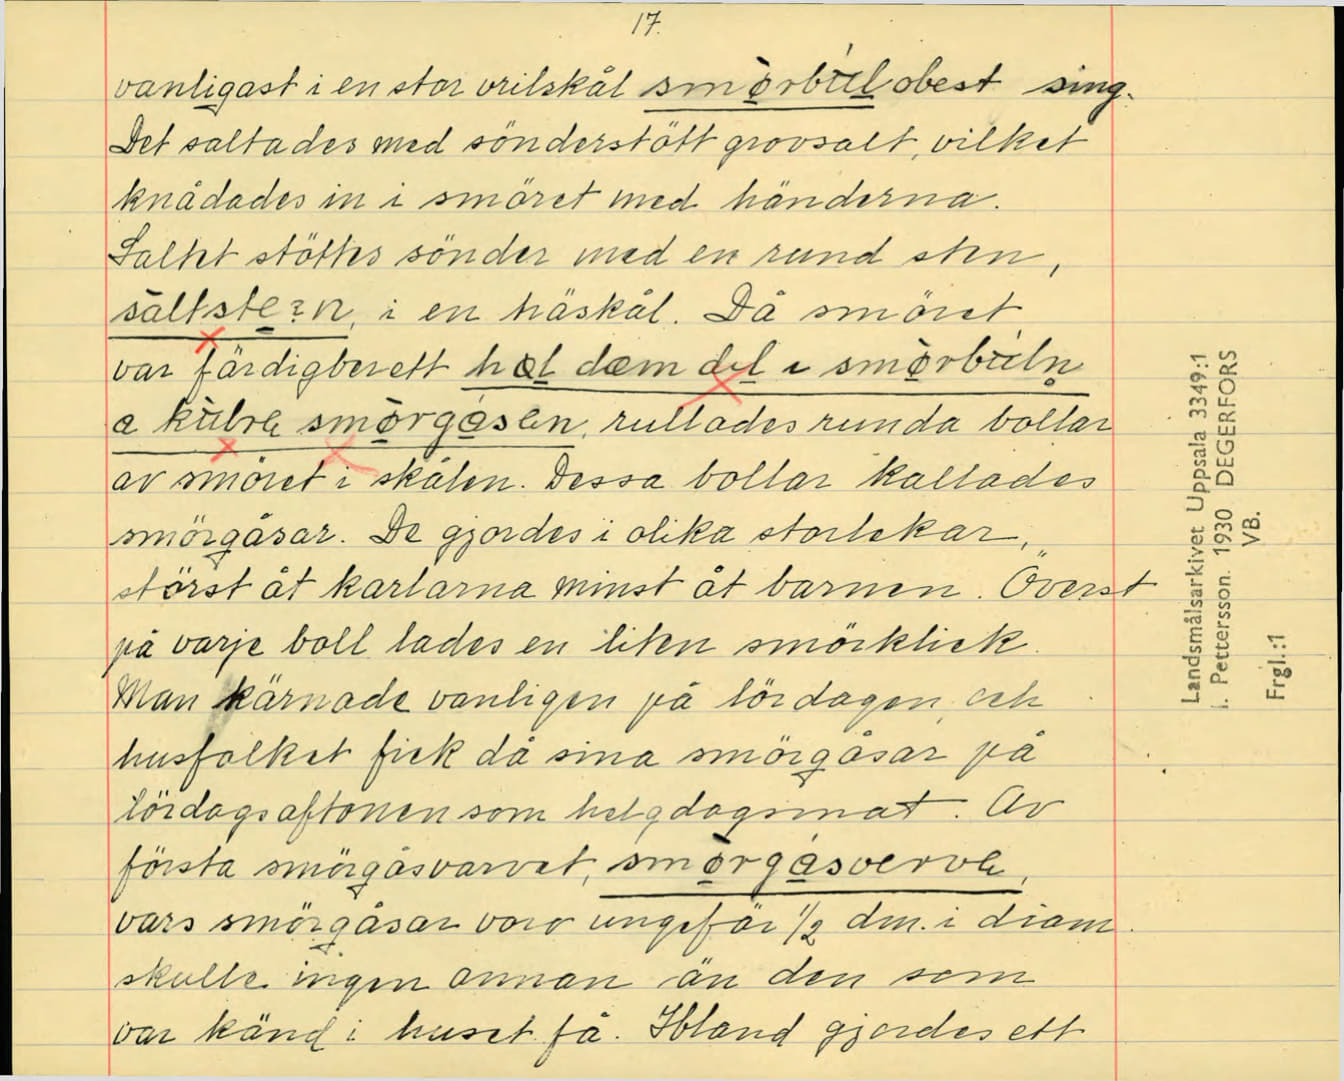 17.
vanligast i en stor vrilskål smörbūl obest sing.
Det saltades med sönderstött grovsalt, vilket
knådades in i smöret med händerna.
Saltet stöttes sönder med en rund sten,
sàltste:n, i en träskål. Då smöret
var färdigberett
rullades runda bollar
av smöret i skålen. Dessa bollar kallades
smörgåsar. De gjordes i olika storlekar,
störst åt karlarna minst åt barnen. Överst
på varje boll lades en liten smörklick.
Man kärnade vanligen på lördagen och
husfolket fick då sina smörgåsar på
lördagsaftonen som helgdagsmat. Av
första smörgåsvarvet,
vars smörgåsar voro ungefär 1/2 dm. i diam.
skulle ingen annan än den som
var känd i huset få. Ibland gjordes ett
Landsmålsarkivet Uppsala 3349:1
I. Pettersson. 1930 DEGERFORS
VB.
Frgl.:1